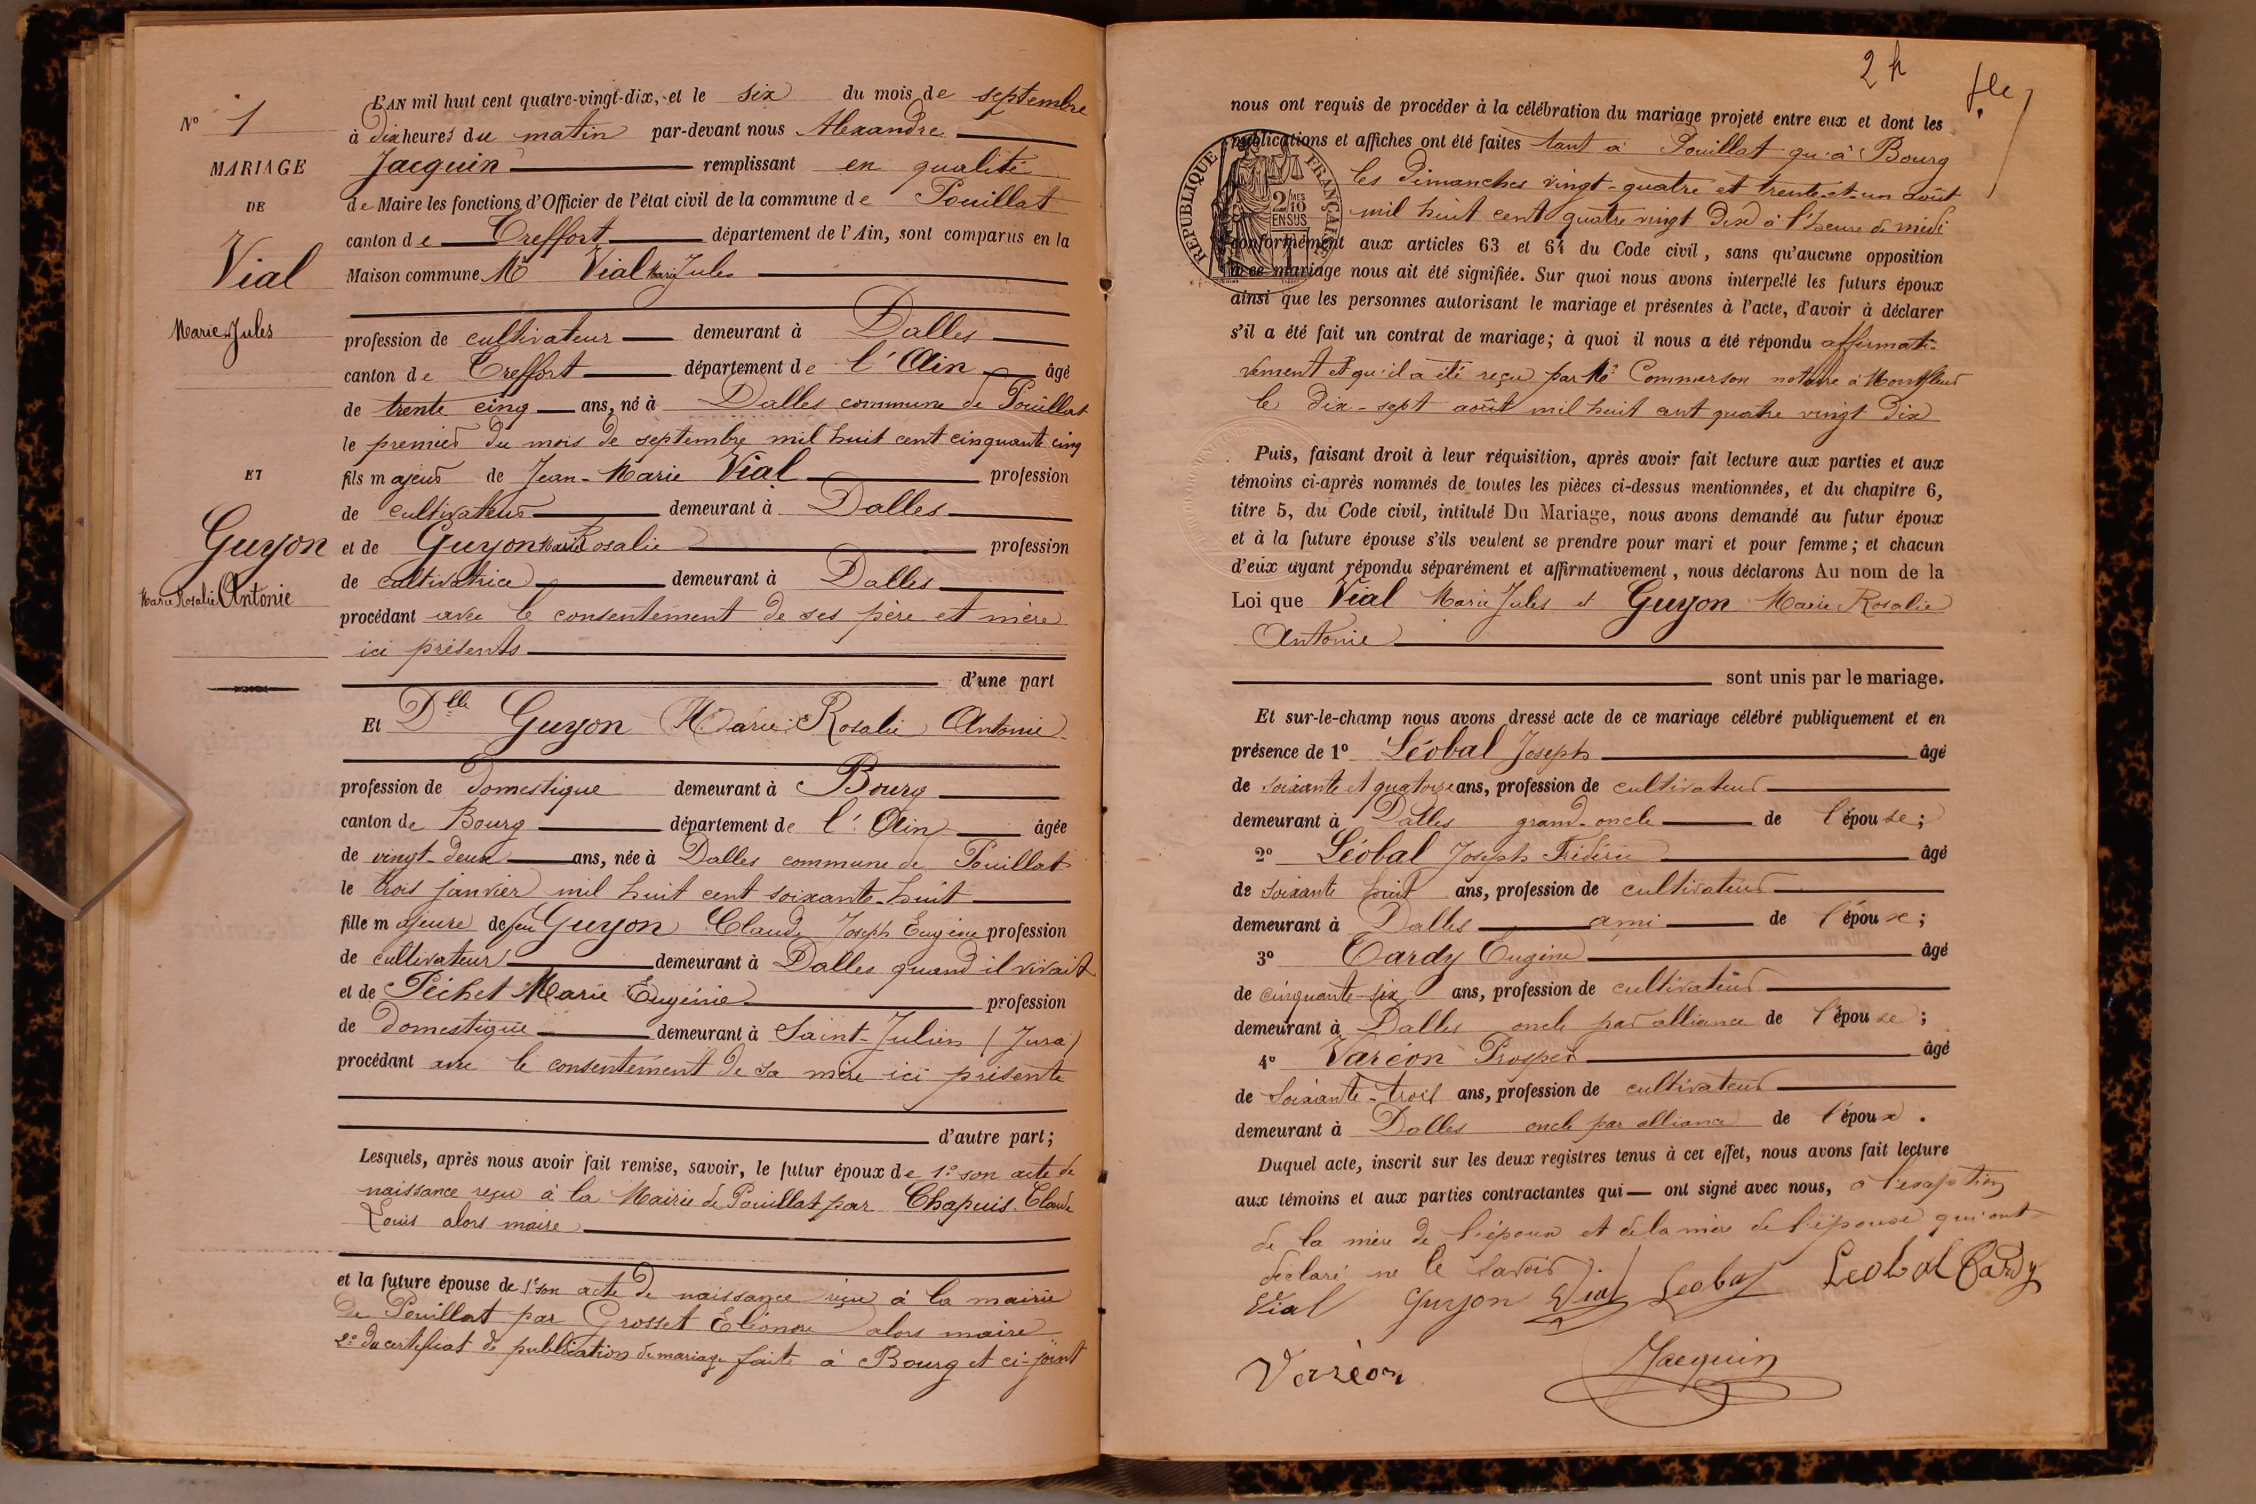 L'AN mil huit cent quatre-vingt-dix, et le six du mois de septembre
à dix heures du matin par-devant nous Alexandre
Jacquin remplissant en qualité
de Maire les fonctions d'Officier de l'état civil de la commune de Pouillat
canton de Treffort département de l'Ain, sont comparus en la
Maison commune Mr Vial Marie Jules
profession de cultivateur demeurant à Dalles
canton de Treffort département de l'Ain âgé
de trente cinq ans, né à Dalles commune de Pouillat
le premier du mois de septembre mil huit cent cinquante cinq
fils majeur de Jean-Marie Vial profession
de cultivateur demeurant à Dalles
et de Guyon Marie Rosalie profession
de cultivatrice demeurant à Dalles
procédant avec le consentement de ses père et mère
ici présents
d'une part
Et Dlle Guyon Marie Rosalie Antonie
profession de domestique demeurant à Bourg
canton de Bourg département de l'Ain âgée
de vingt-deux ans, née à Dalles commune de Pouillat
le trois janvier mil huit cent soixante-huit
fille majeure de feu Guyon Claude Joseph Eugène profession
de cultivateur demeurant à Dalles quand il vivait
et de Péchet Marie Eugénie profession
de domestique demeurant à Saint-Julien (Jura)
procédant avec le consentement de sa mère ici présente
d'autre part;
Lesquels, après nous avoir fait remise, savoir, le futur époux de 1° son acte de
naissance reçu à la Mairie de Pouillat par Chapuis Claude
Louis alors maire
et la future épouse de 1° son acte de naissance reçu à la mairie
de Pouillat par Grosset Eléonore alors maire
2° du certificat de publication de mariage faite à Bourg et ci-joint
N° 1
MARIAGE
DE
Vial
Marie Jules
ET
Guyon
Marie Rosalie Antonie
2
nous ont requis de procéder à la célébration du mariage projeté entre eux et dont les
publications et affiches ont été faites tant à Pouillat qu'à Bourg
les dimanches vingt-quatre et trente-et-un août
mil huit cent quatre vingt dix à l'heure de midi
conformément aux articles 63 et 64 du Code civil, sans qu'aucune opposition
à ce mariage nous ait été signifiée. Sur quoi nous avons interpellé les futurs époux
ainsi que les personnes autorisant le mariage et présentes à l'acte, d'avoir à déclarer
s'il a été fait un contrat de mariage; à quoi il nous a été répondu affirmati-
vement et qu'il a été reçu par Me Commerson notaire à Montfleur
le dix-sept août mil huit cent quatre vingt dix
RÉPUBLIQUE FRANÇAISE
2/10 EN SUS
Puis, faisant droit à leur réquisition, après avoir fait lecture aux parties et aux
témoins ci-après nommés de toutes les pièces ci-dessus mentionnées, et du chapitre 6,
titre 5, du Code civil, intitulé Du Mariage, nous avons demandé au futur époux
et à la future épouse s'ils veulent se prendre pour mari et pour femme; et chacun
d'eux ayant répondu séparément et affirmativement, nous déclarons Au nom de la
Loi que Vial Marie Jules et Guyon Marie Rosalie
Antonie
sont unis par le mariage.
Et sur-le-champ nous avons dressé acte de ce mariage célébré publiquement et en
présence de 1° Léobal Joseph âgé
de soixante et quatorze ans, profession de cultivateur
demeurant à Dalles grand-oncle de l'épouse;
2° Léobal Joseph Frédéric âgé
de soixante huit ans, profession de cultivateur
demeurant à Dalles ami de l'époux;
3° Cardy Eugène âgé
de cinquante-six ans, profession de cultivateur
demeurant à Dalles oncle par alliance de l'épouse;
4° Varéon Prosper âgé
de soixante-trois ans, profession de cultivateur
demeurant à Dalles oncle par alliance de l'époux.
Duquel acte, inscrit sur les deux registres tenus à cet effet, nous avons fait lecture
aux témoins et aux parties contractantes qui ont signé avec nous, à l'exception
de la mère de l'époux et de la mère de l'épouse qui ont
déclaré ne le savoir.
Vial Guyon Vial Leobal Leobal Cardy
Varéon Jacquin